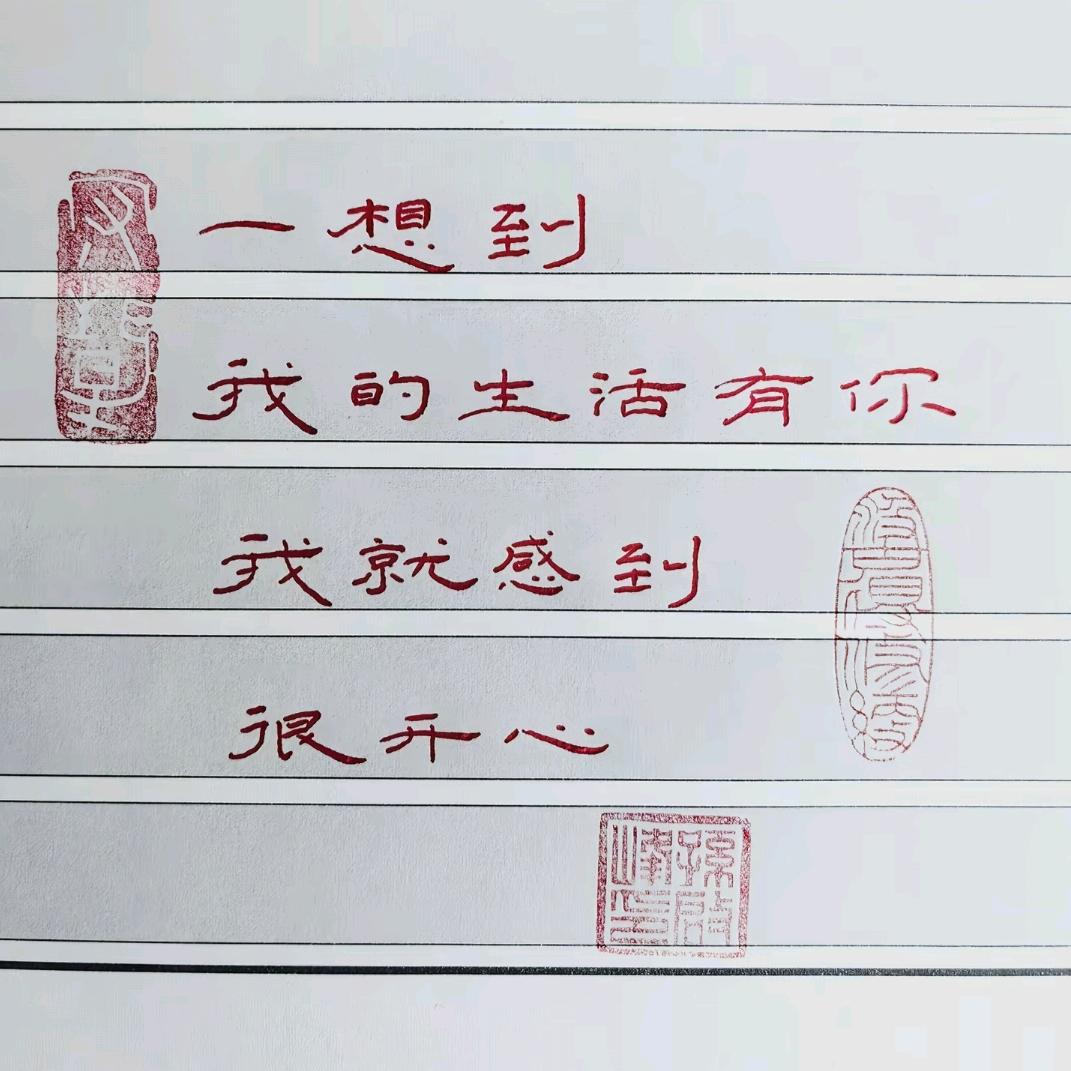 一想到
我的生活有你
我就感到
很开心